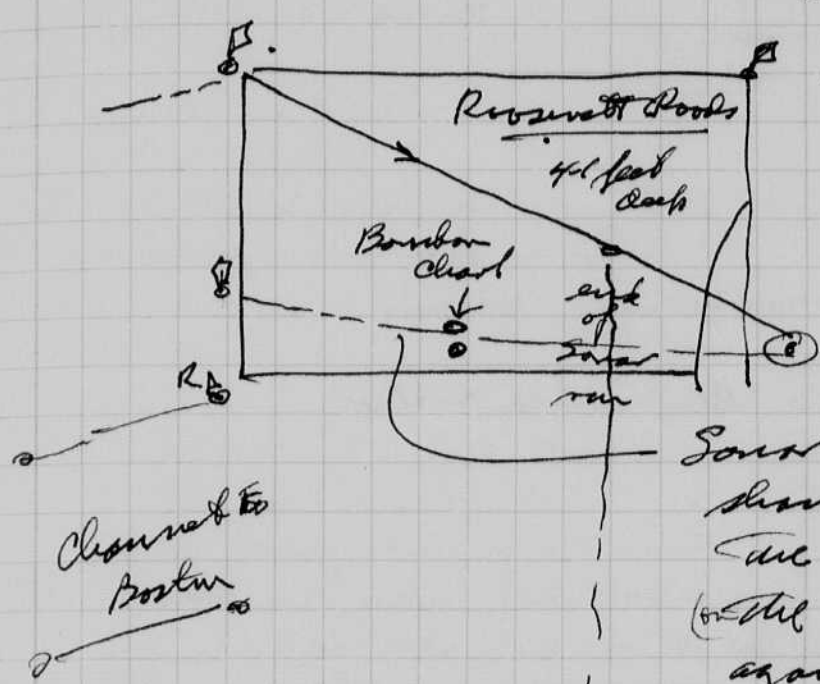 Roosevelt Roads
feet
deep
end
of
Sonar
run
R
Channel to
Boston
Sonar
the
(on the